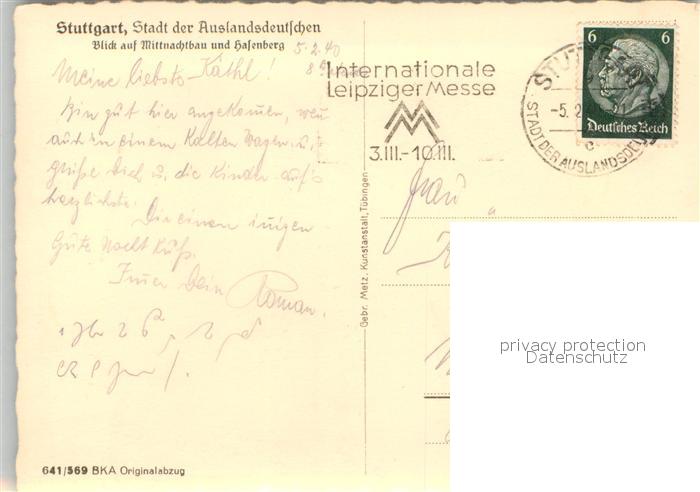 Stuttgart, Stadt der Auslandsdeutschen
Blick auf Mittnachtbau und Hasenberg
5.2.40
8
Meine liebste Käthl!
Bin gut hier angekommen, wenn
auch in einem kalten Wagen u.
grüße Dich u. die Kinder auf's
herzlichste. Dir einen innigen
Gute Nacht Kuß.
Immer Dein Roman.
Internationale
Leipziger Messe
3.III.-10.III.
STUTTGART
-5.2
STADT DER AUSLANDSDEU
6 6
Deutsches Reich
Frau
Gebr. Metz, Kunstanstalt, Tübingen
privacy protection
Datenschutz
641/569 BKA Originalabzug